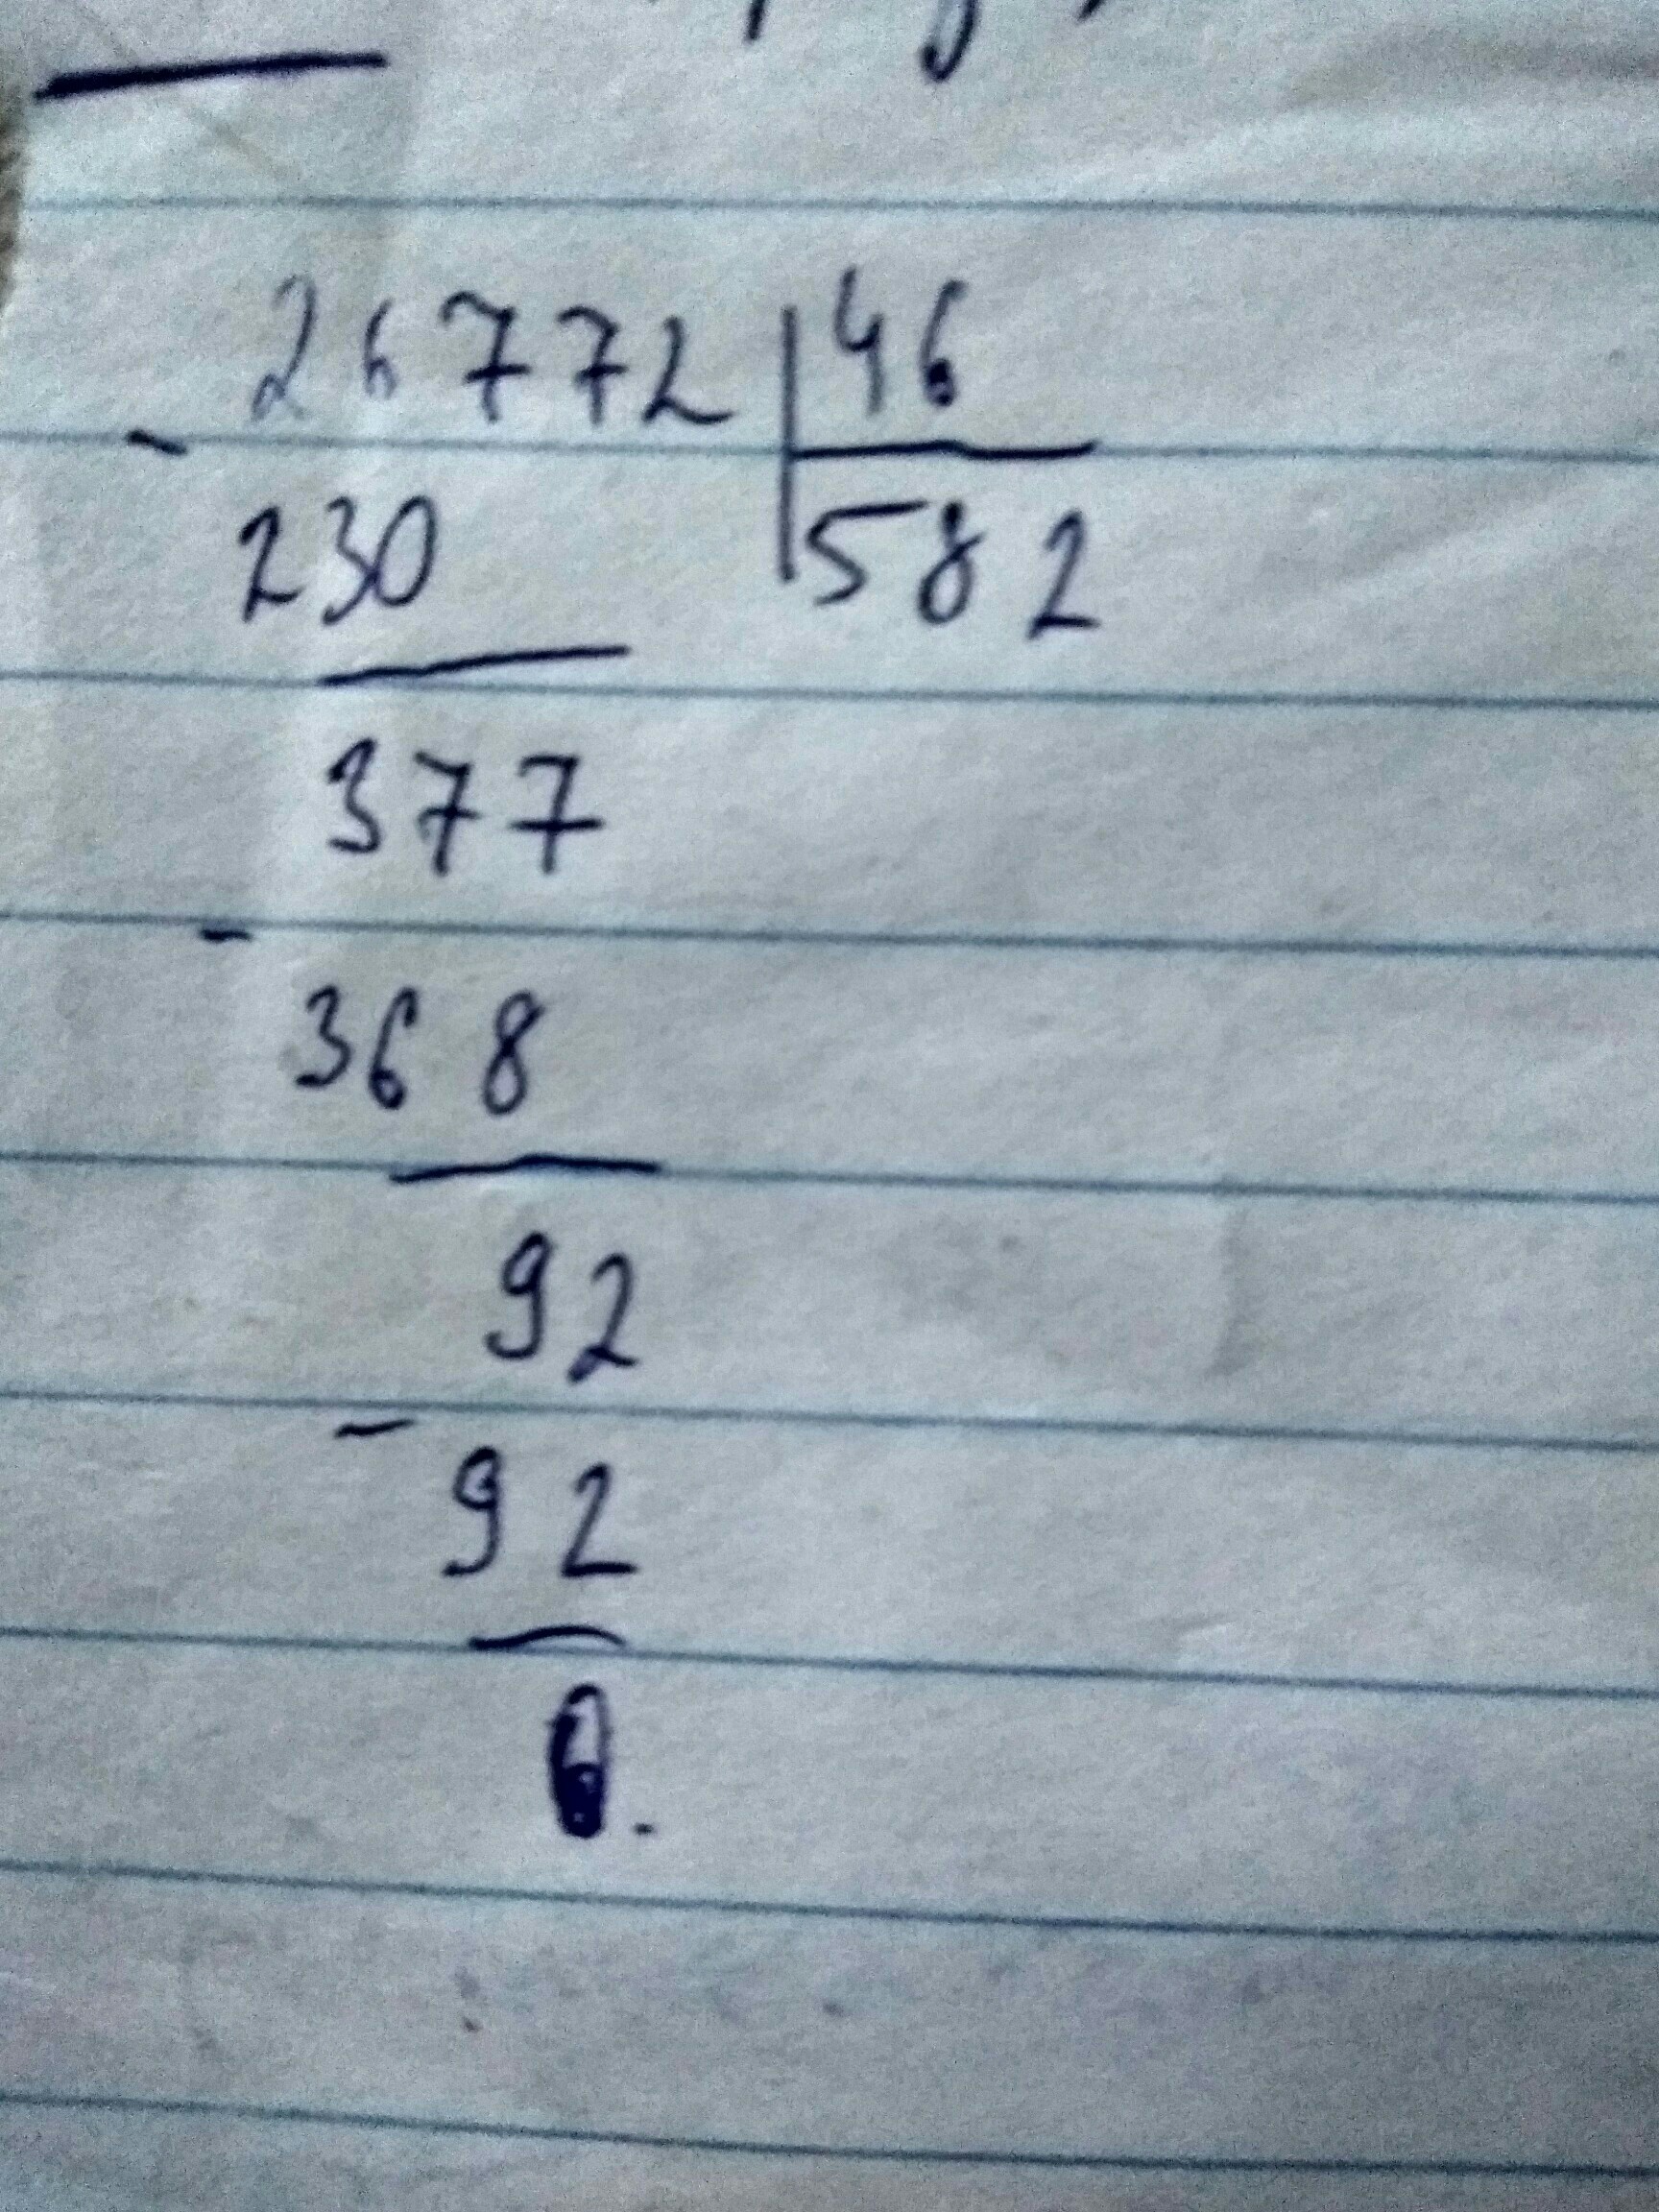 26772 | 46
- 230 | 582
377
- 368
92
- 92
0.